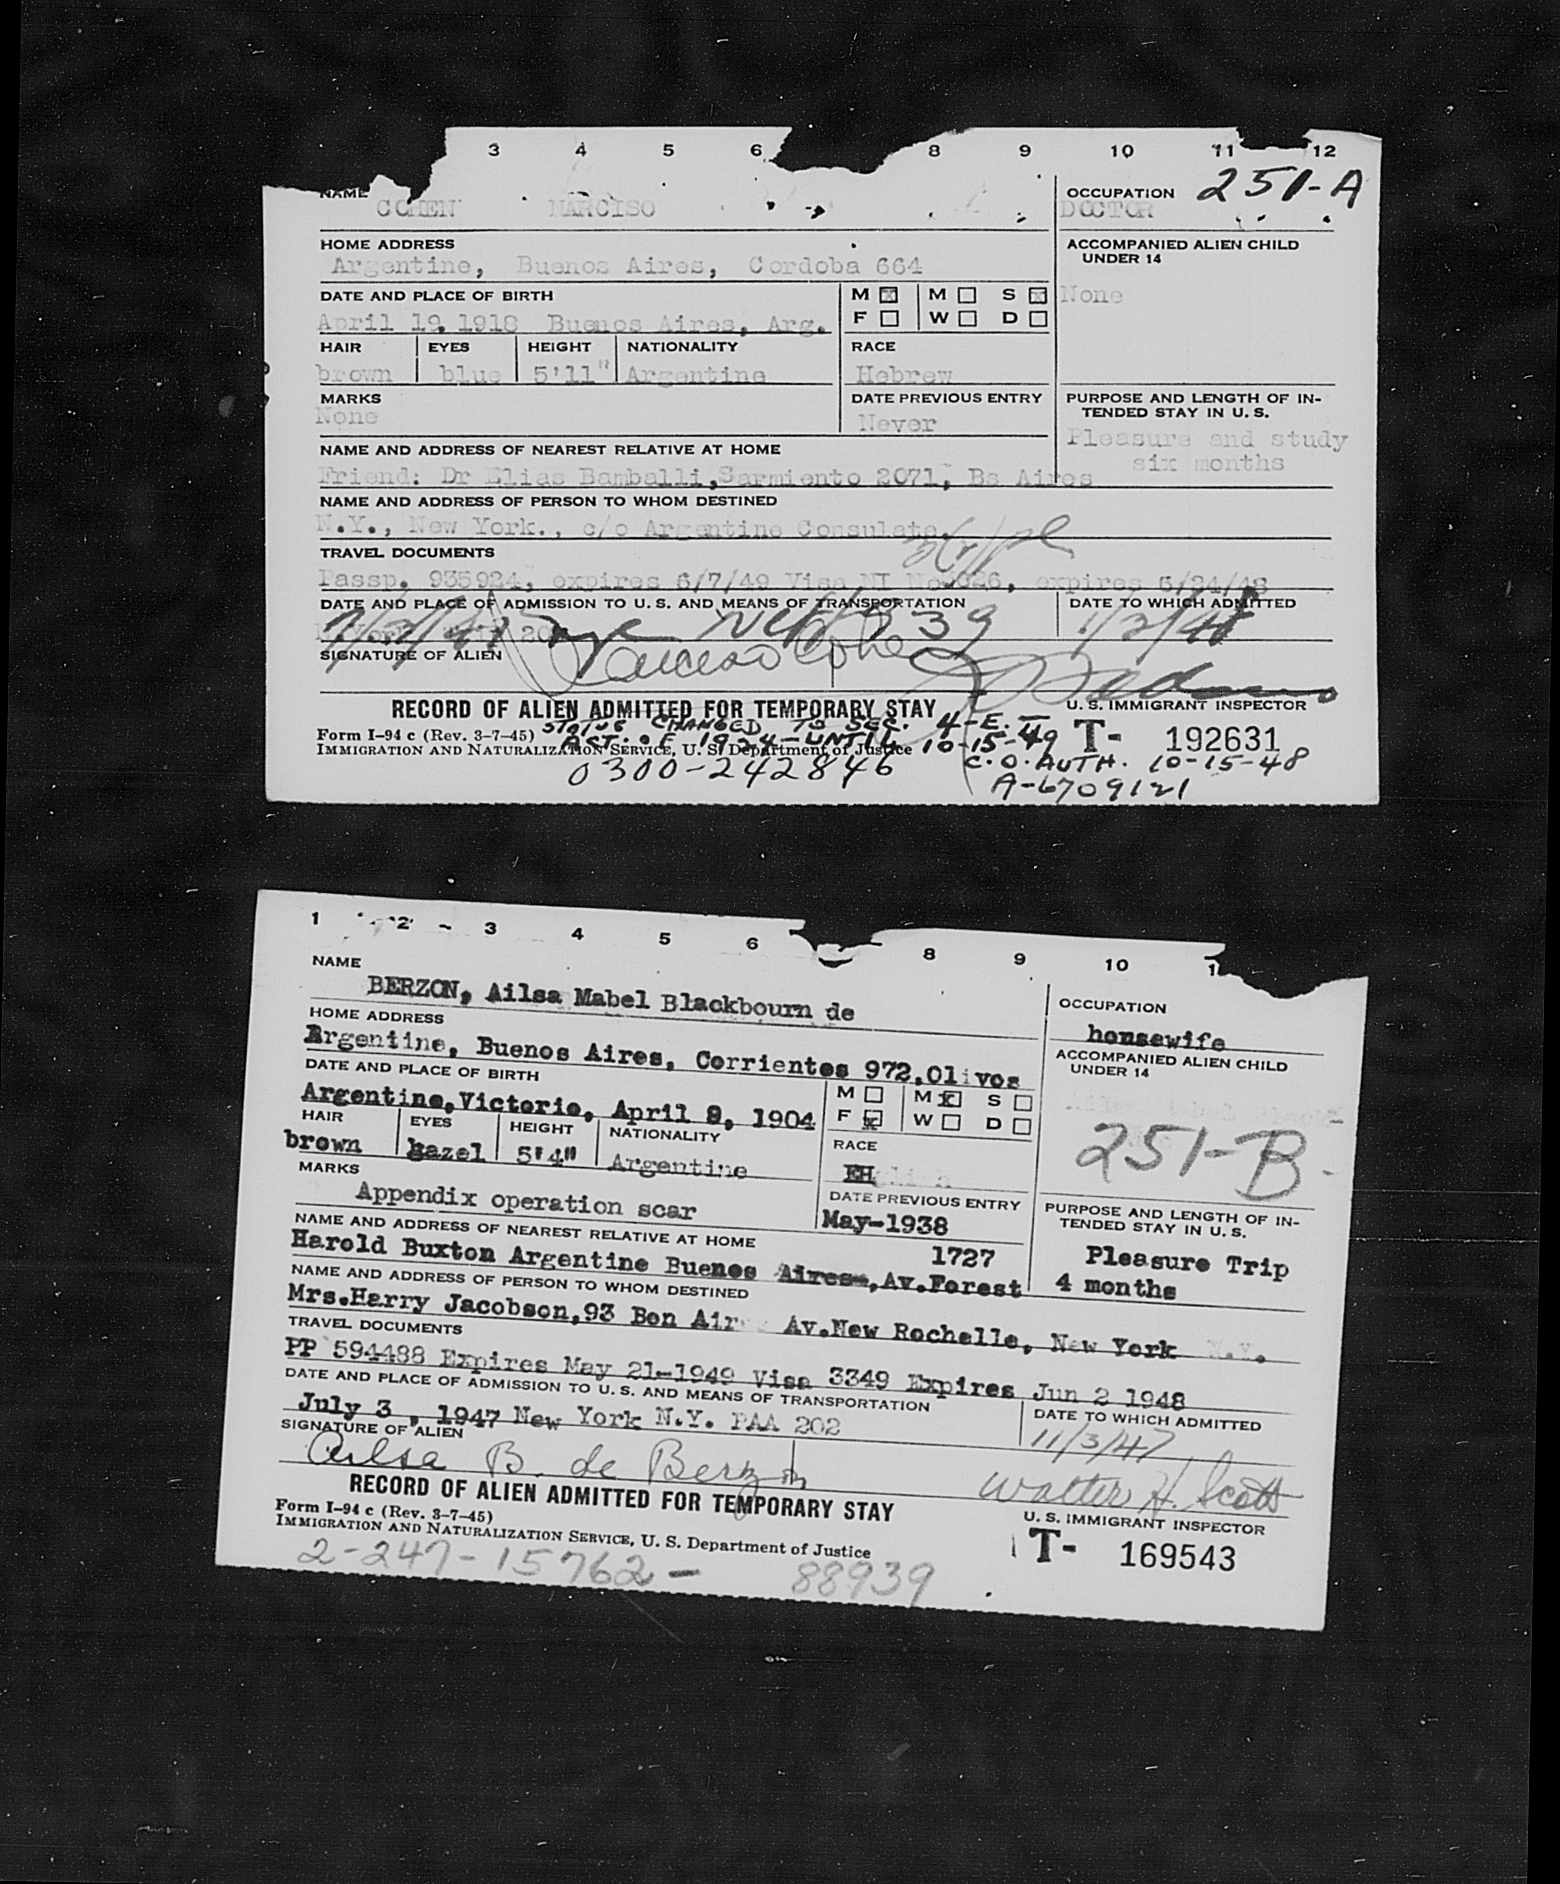 3 4 5 6 8 9 10 11 12
NAME
COHEN NARCISO
OCCUPATION 251-A
DOCTOR
HOME ADDRESS
Argentine, Buenos Aires, Cordoba 664
ACCOMPANIED ALIEN CHILD
UNDER 14
None
DATE AND PLACE OF BIRTH
April 19 1918 Buenos Aires, Arg.
M M S
F W D
HAIR EYES HEIGHT NATIONALITY RACE
brown blue 5'11" Argentine Hebrew
MARKS
None
DATE PREVIOUS ENTRY
Never
PURPOSE AND LENGTH OF IN-
TENDED STAY IN U. S.
Pleasure and study
six months
NAME AND ADDRESS OF NEAREST RELATIVE AT HOME
Friend: Dr Elias Bamballi, Sarmiento 2071, Bs Aires
NAME AND ADDRESS OF PERSON TO WHOM DESTINED
N.Y., New York., c/o Argentine Consulate.
TRAVEL DOCUMENTS
Passp. 935924, expires 6/7/49 Visa NI No. 626, expires 5/24/48
DATE AND PLACE OF ADMISSION TO U. S. AND MEANS OF TRANSPORTATION
DATE TO WHICH ADMITTED
1/2/48
SIGNATURE OF ALIEN
Narciso Cohen
RECORD OF ALIEN ADMITTED FOR TEMPORARY STAY
U. S. IMMIGRANT INSPECTOR
STATUS CHANGED TO SEC. 4-E.
Form I-94 c (Rev. 3-7-45)
ACT. OF 1924-UNTIL 10-15-49
T- 192631
IMMIGRATION AND NATURALIZATION SERVICE, U. S. Department of Justice
C.O. AUTH. 10-15-48
0300-242846
A-6709121
1 2 3 4 5 6 8 9 10
NAME
BERZON, Ailsa Mabel Blackbourn de
OCCUPATION
housewife
HOME ADDRESS
Argentine, Buenos Aires, Corrientes 972,Olivos
ACCOMPANIED ALIEN CHILD
UNDER 14
251-B
DATE AND PLACE OF BIRTH
Argentine,Victoria, April 8, 1904
M M S
F W D
HAIR EYES HEIGHT NATIONALITY RACE
brown hazel 5'4" Argentine
MARKS
Appendix operation scar
DATE PREVIOUS ENTRY
May-1938
PURPOSE AND LENGTH OF IN-
TENDED STAY IN U. S.
Pleasure Trip
4 months
NAME AND ADDRESS OF NEAREST RELATIVE AT HOME
1727
Harold Buxton Argentine Buenos Aires,Av.Forest
NAME AND ADDRESS OF PERSON TO WHOM DESTINED
Mrs.Harry Jacobson,93 Bon Air Av.New Rochelle, New York N.Y.
TRAVEL DOCUMENTS
PP 594488 Expires May 21-1949 Visa 3349 Expires Jun 2 1948
DATE AND PLACE OF ADMISSION TO U. S. AND MEANS OF TRANSPORTATION
July 3, 1947 New York N.Y. PAA 202
DATE TO WHICH ADMITTED
11/3/47
SIGNATURE OF ALIEN
Ailsa B. de Berzon
Walter H. Scott
RECORD OF ALIEN ADMITTED FOR TEMPORARY STAY
U. S. IMMIGRANT INSPECTOR
Form I-94 c (Rev. 3-7-45)
IMMIGRATION AND NATURALIZATION SERVICE, U. S. Department of Justice
T- 169543
2-247-15762- 88939